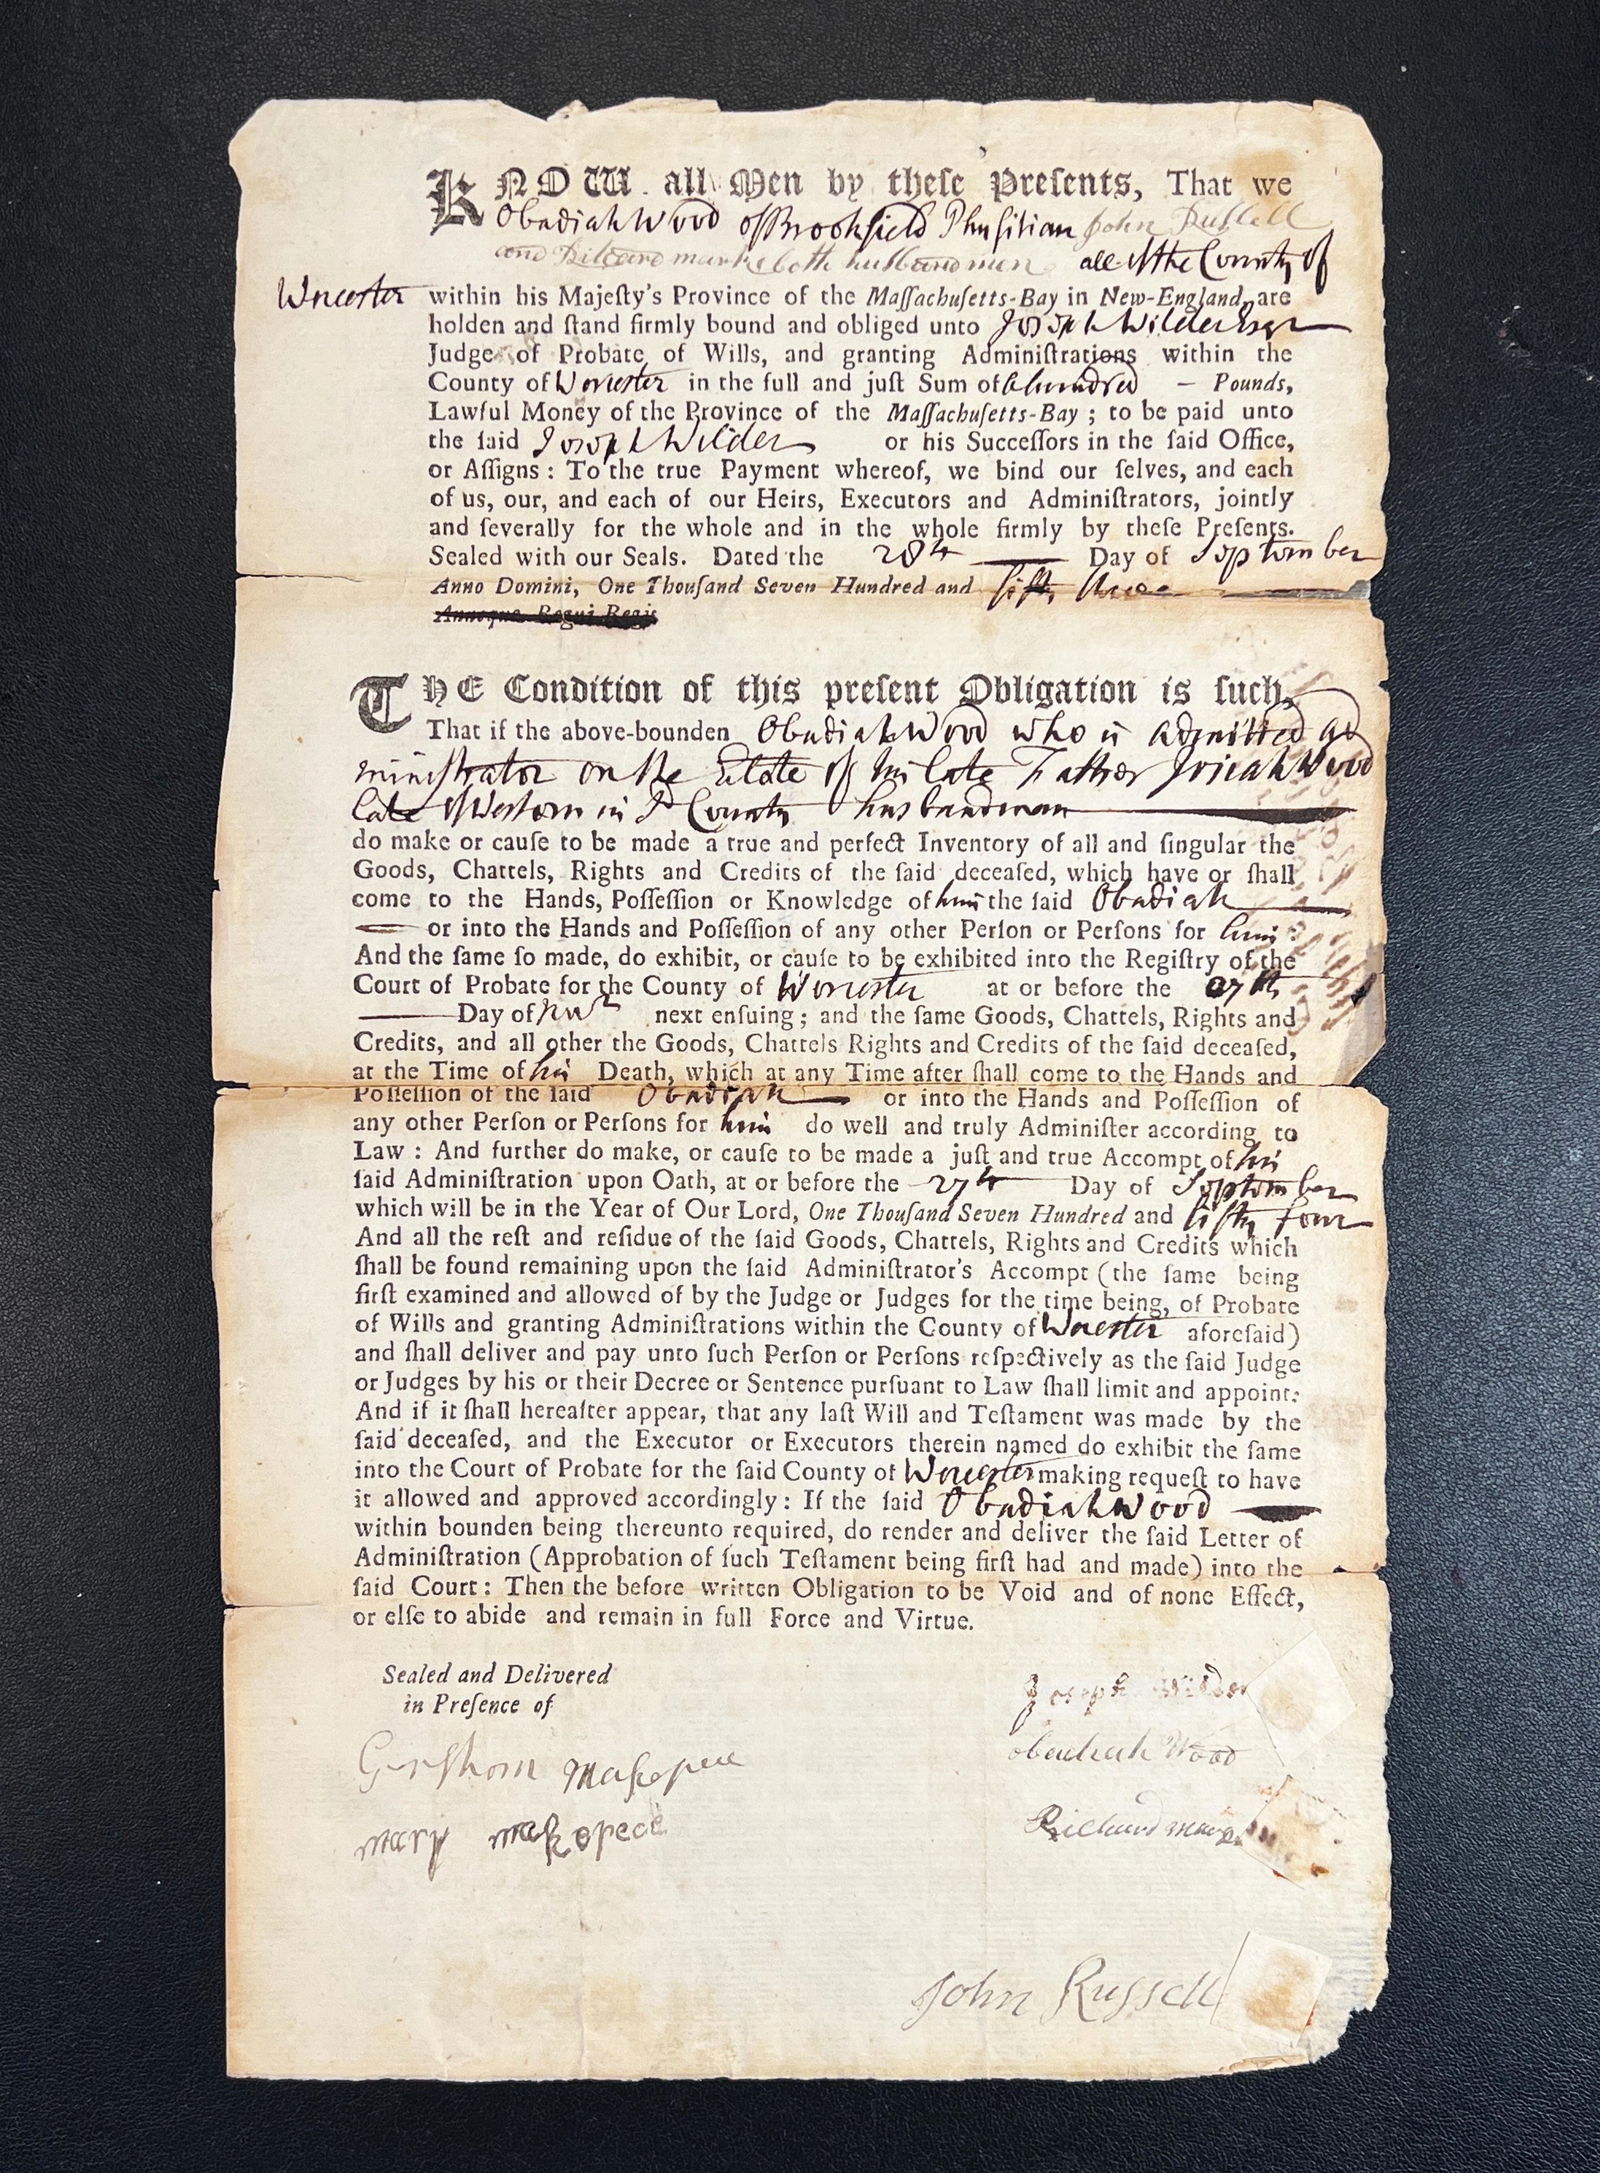 KNOW all Men by theſe Preſents, That we
Obadiah Wood of Brookfield Phyſitian John Ruſſell
and both husbandmen all of the County of
Worcester within his Majeſty's Province of the Maſſachuſetts-Bay in New-England, are
holden and ſtand firmly bound and obliged unto Joseph Wilder Esqr
Judge of Probate of Wills, and granting Adminiſtrations within the
County of Worcester in the full and juſt Sum of a hundred – Pounds,
Lawful Money of the Province of the Maſſachuſetts-Bay ; to be paid unto
the ſaid Joseph Wilder or his Succeſſors in the ſaid Office,
or Aſſigns : To the true Payment whereof, we bind our ſelves, and each
of us, our, and each of our Heirs, Executors and Adminiſtrators, jointly
and ſeverally for the whole and in the whole firmly by theſe Preſents.
Sealed with our Seals. Dated the 28th Day of September
Anno Domini, One Thouſand Seven Hundred and fifty three
Annoque Regni Regis
THE Condition of this preſent Obligation is ſuch,
That if the above-bounden Obadiah Wood who is admitted ad
ministrator on the Estate of his late Father Wood
late of Western in sd County husbandman
do make or cauſe to be made a true and perfect Inventory of all and ſingular the
Goods, Chattels, Rights and Credits of the ſaid deceaſed, which have or ſhall
come to the Hands, Poſſeſſion or Knowledge of him the ſaid Obadiah
or into the Hands and Poſſeſſion of any other Perſon or Perſons for him :
And the ſame ſo made, do exhibit, or cauſe to be exhibited into the Regiſtry of the
Court of Probate for the County of Worcester at or before the 27th
Day of Novr next enſuing ; and the ſame Goods, Chattels, Rights and
Credits, and all other the Goods, Chattels Rights and Credits of the ſaid deceaſed,
at the Time of his Death, which at any Time after ſhall come to the Hands and
Poſſeſſion of the ſaid Obadiah or into the Hands and Poſſeſſion of
any other Perſon or Perſons for him do well and truly Adminiſter according to
Law : And further do make, or cauſe to be made a juſt and true Accompt of his
ſaid Adminiſtration upon Oath, at or before the 27th Day of September
which will be in the Year of Our Lord, One Thouſand Seven Hundred and fifty four
And all the reſt and reſidue of the ſaid Goods, Chattels, Rights and Credits which
ſhall be found remaining upon the ſaid Adminiſtrator's Accompt (the ſame being
firſt examined and allowed of by the Judge or Judges for the time being, of Probate
of Wills and granting Adminiſtrations within the County of Worcester aforeſaid)
and ſhall deliver and pay unto ſuch Perſon or Perſons reſpectively as the ſaid Judge
or Judges by his or their Decree or Sentence purſuant to Law ſhall limit and appoint:
And if it ſhall hereafter appear, that any laſt Will and Teſtament was made by the
ſaid deceaſed, and the Executor or Executors therein named do exhibit the ſame
into the Court of Probate for the ſaid County of Worcester making requeſt to have
it allowed and approved accordingly : If the ſaid Obadiah Wood
within bounden being thereunto required, do render and deliver the ſaid Letter of
Adminiſtration (Approbation of ſuch Teſtament being firſt had and made) into the
ſaid Court : Then the before written Obligation to be Void and of none Effect,
or elſe to abide and remain in full Force and Virtue.
Sealed and Delivered
in Preſence of
Joseph Wilder
Gershom Makepeace
obadiah Wood
mary makepeace
Richard
John Russell